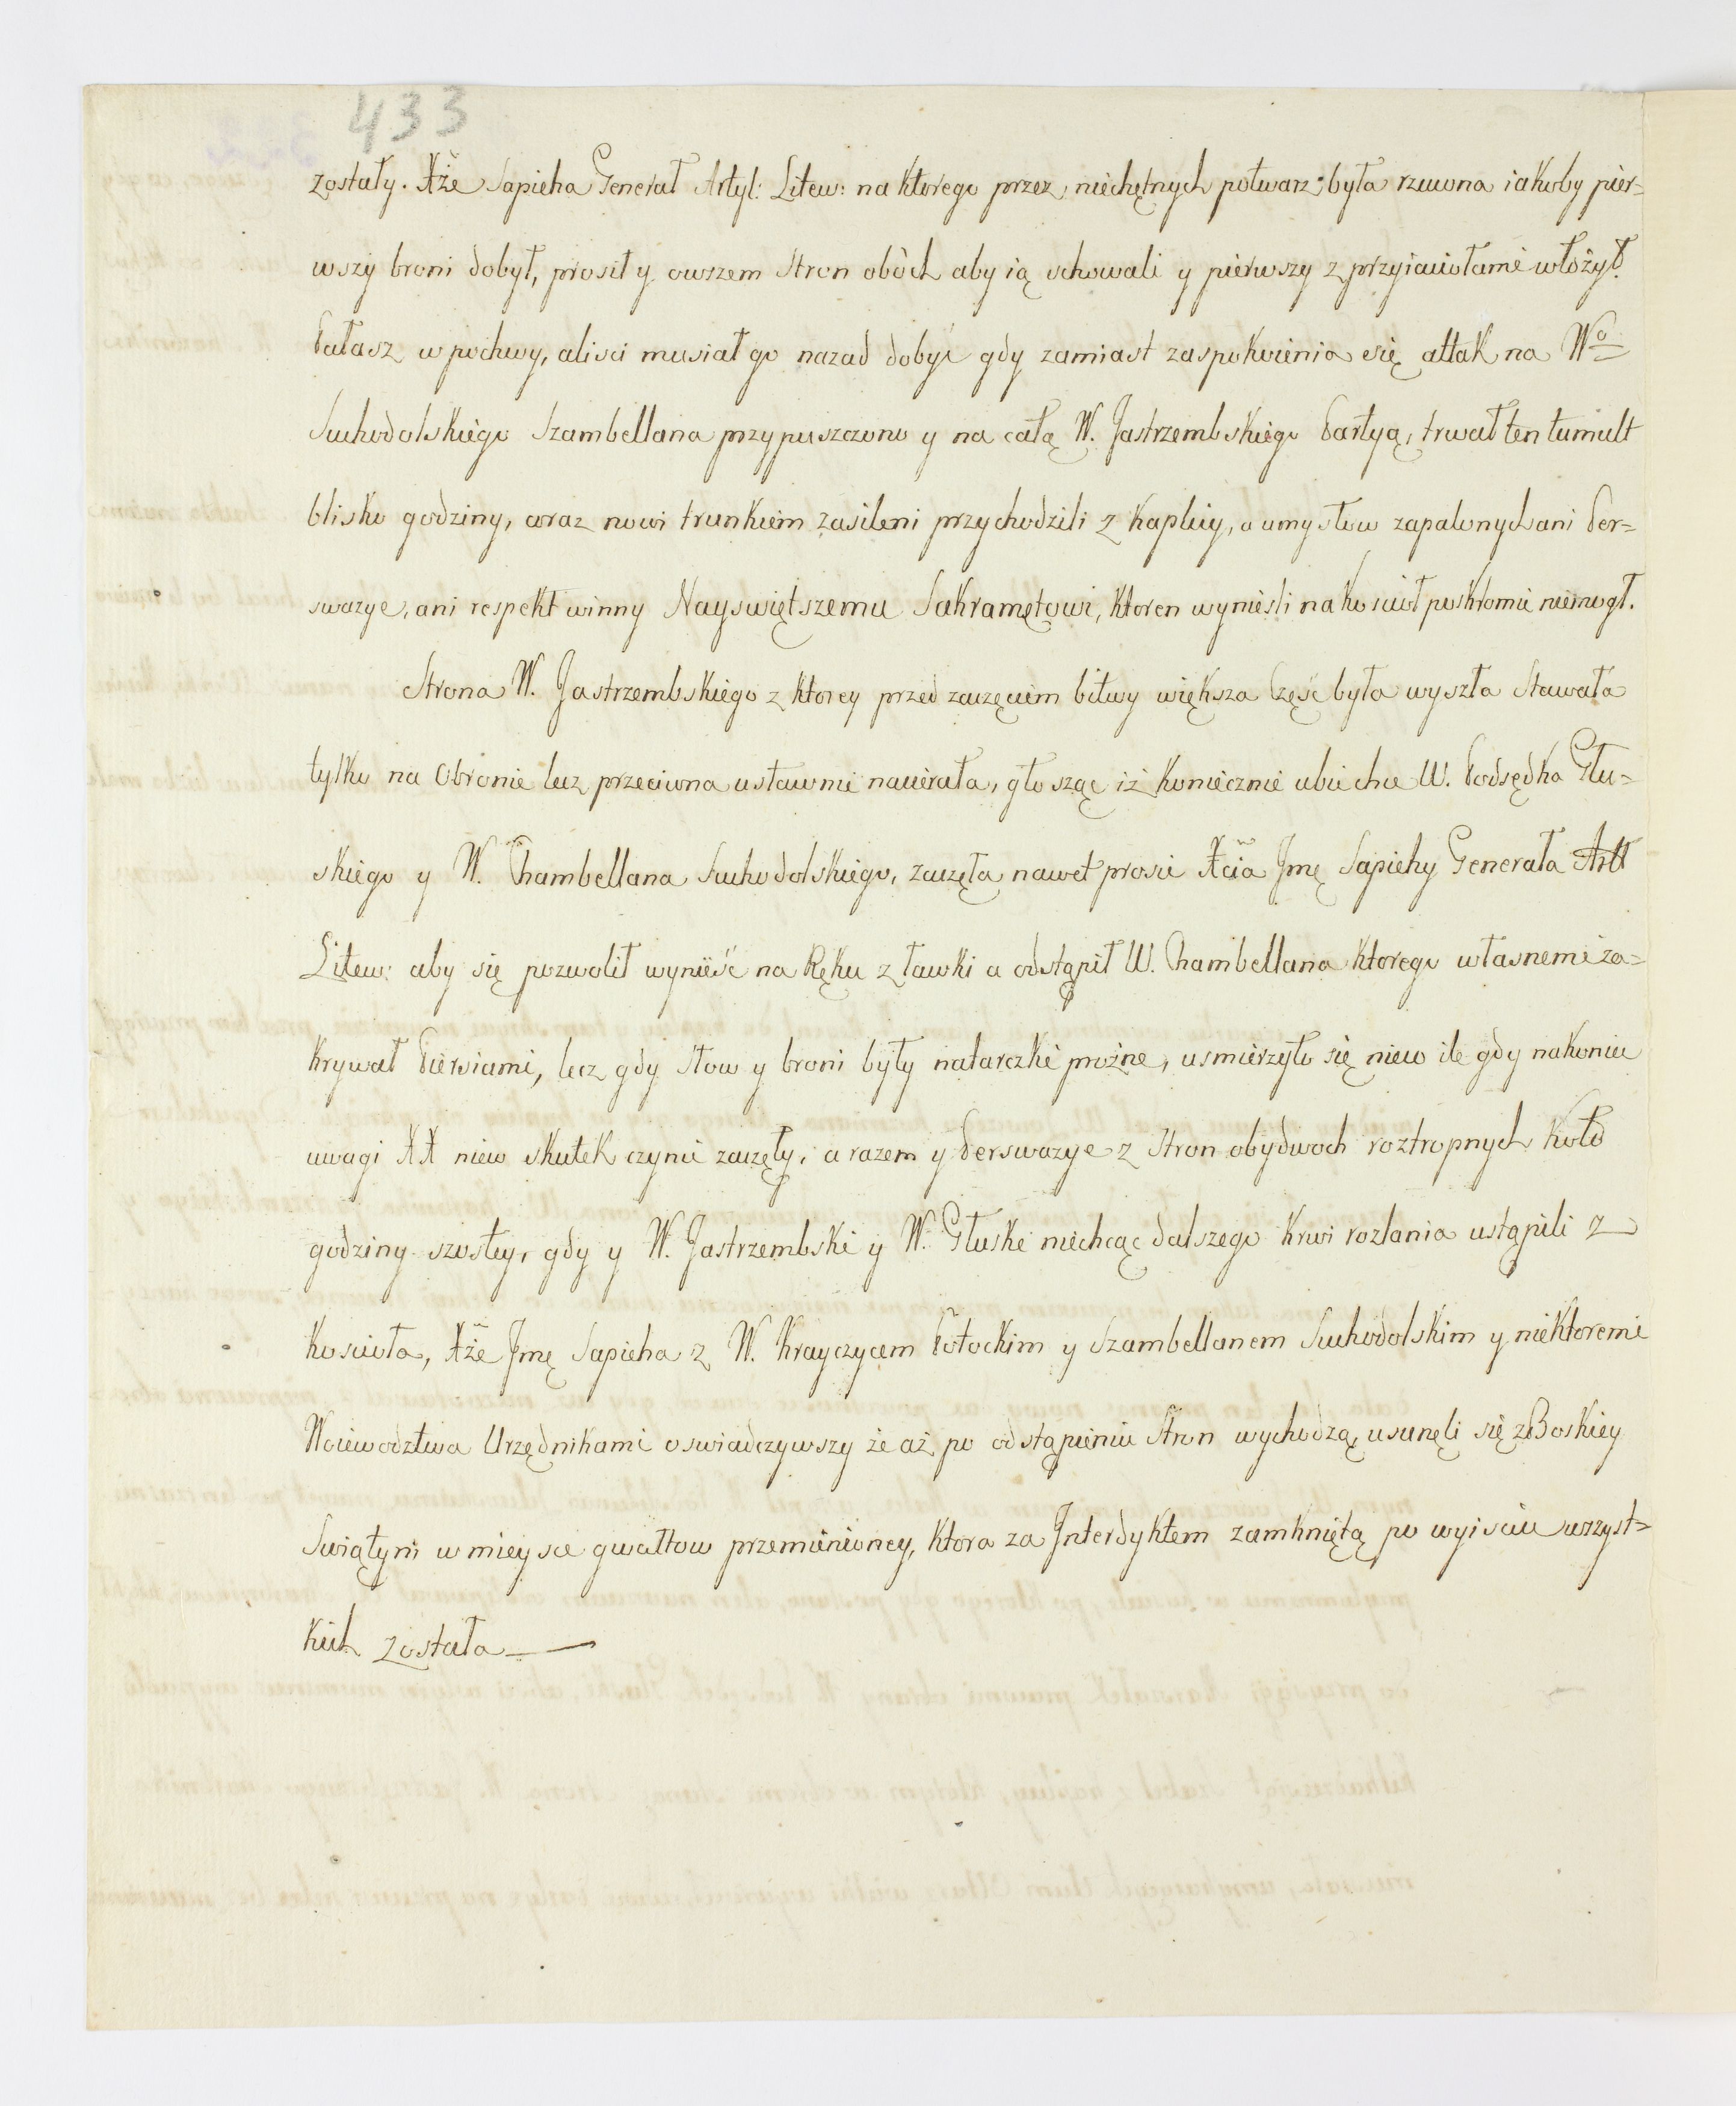 433
zostały. Xże Sapieha Generał Artyl: Litew: na ktorego przez niechętnych potwarz była rzucona iakoby pier=
wszy broni dobył, prosił y owszem Stron obòch aby ią schowali y pierwszy z przyiaciołami włożył
Pałasz w pochwy, alisci musiał go nazad dobyć gdy zamiast zaspokoienia się attak na Wo
Suchodolskiego Szambellana przypuszczono y na całą W. Jastrzembskiego Partyą, trwał ten tumult
blisko godziny, coraz nowi trunkiem zasileni przychodzili z Kaplicy, a umysłow zapalonych ani Per=
swazye, ani respekt winny Nayswiętszemu Sakramętowi, ktoren wyniesli na kosciół poskromic niemogł.
Strona W. Jastrzembskiego z ktorey przed zaczęciem bitwy większa Część była wyszła Stawała
tylko na Obronie lecz przeciwna ustawnie nacierała, głosząc iż koniecznie ubic chce W. Podsędka Głu=
skiego y W. Chambellana Suchodolskiego, zaczęła nawet prosic Xcia Jmę Sapiehy Generała Artt
Litew: aby się pozwolił wynieść na Ręku z ławki a odstąpił W. Chambellana ktorego własnemi za=
krywał Piersiami, lecz gdy słow y broni były natarczki prożne, usmierzyło się nieco ile gdy nakoniec
uwagi XX nieco skutek czynic zaczęły, a razem y Perswazye z Stron obydwoch roztropnych koło
godziny szostey, gdy y W. Jastrzembski y W. Głuski niechcąc dalszego krwi rozlania ustąpili z
kosciola, Xże Jmę Sapieha z W. Krayczycem Potockim y Szambellanem Suchodolskim y niektoremi
Woiewodztwa Urzędnikami oswiadczywszy że aż po odstąpieniu Stron wychodzą, usunęli się z Boskiey
Swiątyni w mieysce gwałtow przemienioney, ktora za Interdyktem zamkniętą po wyisciu wszyst=
kich została